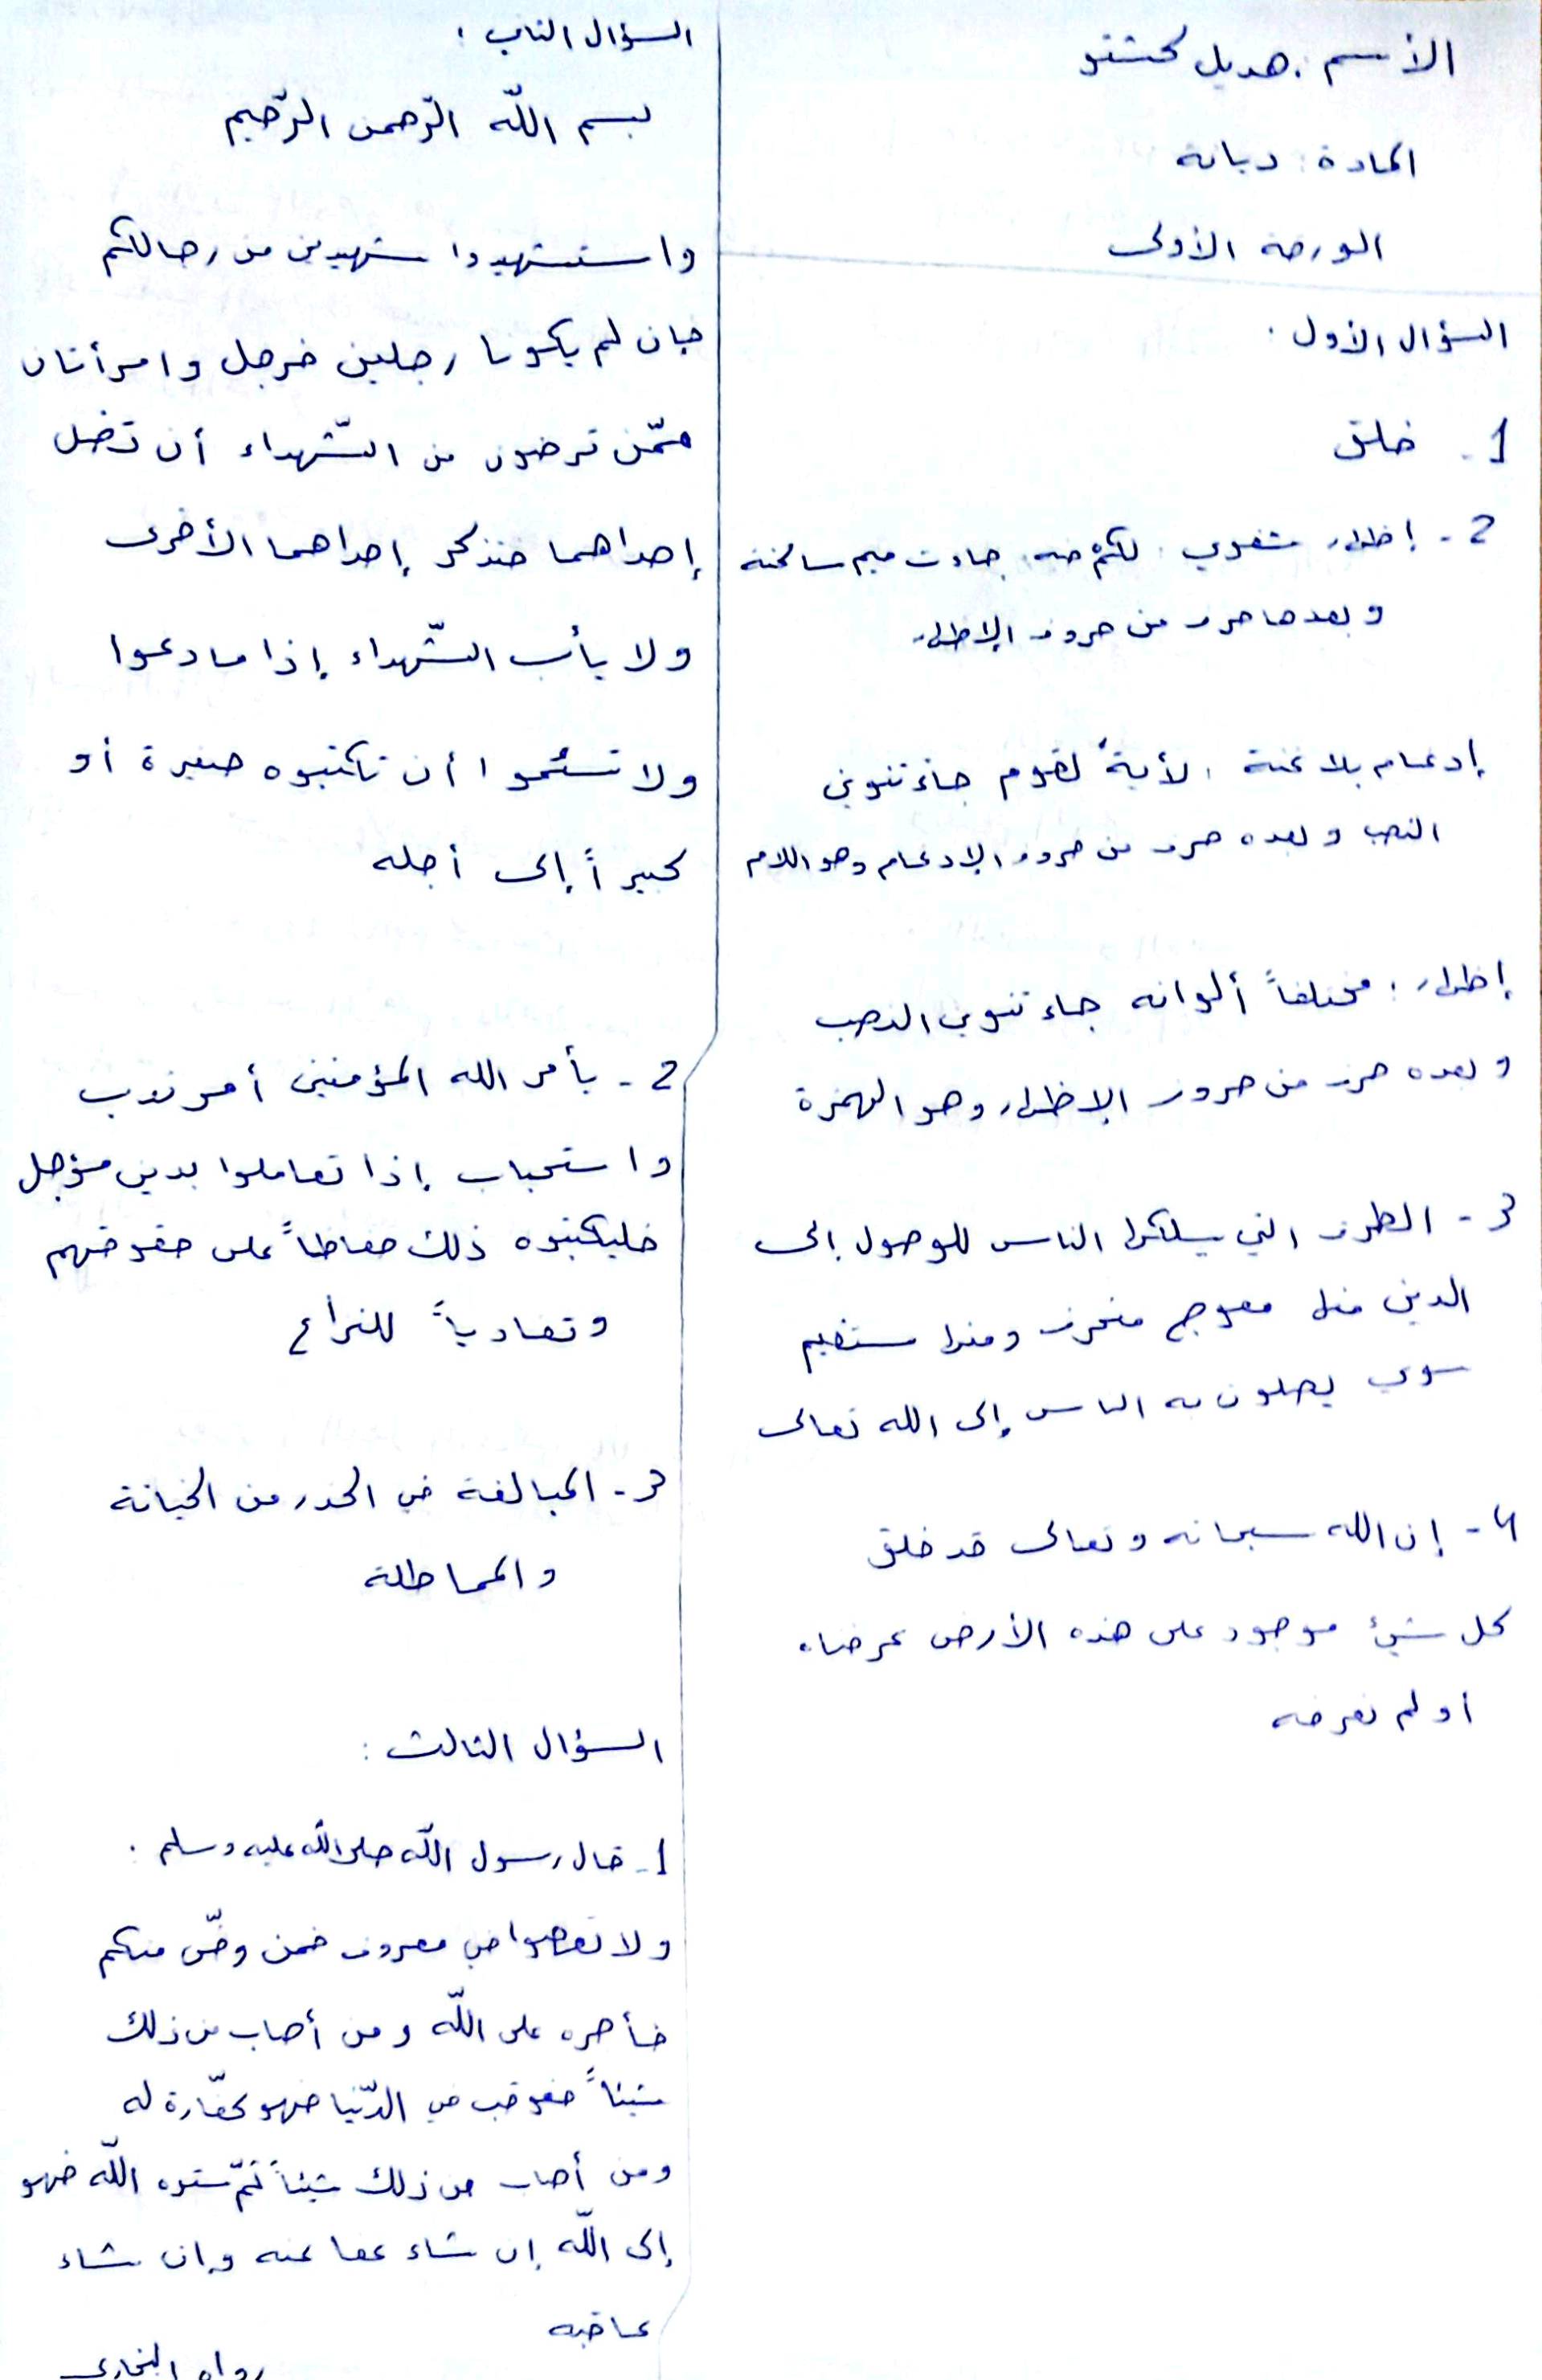 الأسم : هديل كشتو
المادة : ديانة
الورقة الأولى
السؤال الأول :
1- خلق
2- إظهار شفوي : لكمْ فيه جاءت ميم ساكنة
وبعدها حرف من حروف الإظهار
إدغام بلا غنة : لأيةً لقوم جاء تنوين
النصب وبعده حرف من حروف الإدغام وهو اللام
إظهار : مختلفاً ألوانه جاء تنوين النصب
وبعده حرف من حروف الإظهار وهو الهمزة
3- الطرق التي يسلكها الناس للوصول إلى
الدين منها معوج منحرف ومنها مستقيم
سوي يصلون به الناس إلى الله تعالى
4- إن الله سبحانه وتعالى قد خلق
كل شيئ موجود على هذه الأرض عرفناه
أو لم نعرفه
السؤال الثاني :
بسم اللّه الرّحمن الرّحيم
واستشهدوا شهيدين من رجالكم
فإن لم يكونا رجلين فرجل وامرأتان
ممّن ترضون من الشّهداء أن تضل
إحداهما فتذكر إحداهما الأخرى
ولا يأب الشّهداء إذا ما دعوا
ولا تسئموا أن تكتبوه صغيرة أو
كبيراً إلى أجله
2- يأمر الله المؤمنين أمر ندب
واستحباب إذا تعاملوا بدين مؤجل
فليكتبوه ذلك حفاظاً على حقوقهم
وتفادياً للنزاع
3- المبالغة في الحذر من الخيانة
والمماطلة
السؤال الثالث :
1- قال رسول اللّه صلى اللّه عليه وسلم :
ولا تعصوا في معروف فمن وفّى منكم
فأجره على اللّه ومن أصاب من ذلك
شيئاً فعوقب في الدّنيا فهو كفّارة له
ومن أصاب من ذلك شيئاً ثمّ ستره اللّه فهو
إلى اللّه إن شاء عفا عنه وإن شاء
عاقبه
رواه البخاري